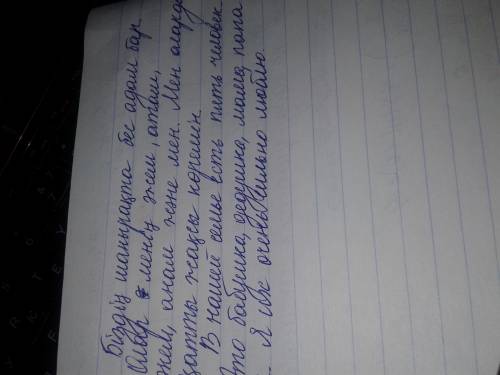 Біздің шаңырақта бес адам бар
Олар менің әжем, атам,
әкем, анам және мен. Мен оларды
қатты жақсы көремін.
В нашей семье есть пять человек
Это бабушка, дедушка, мама, папа
Я их очень сильно люблю.